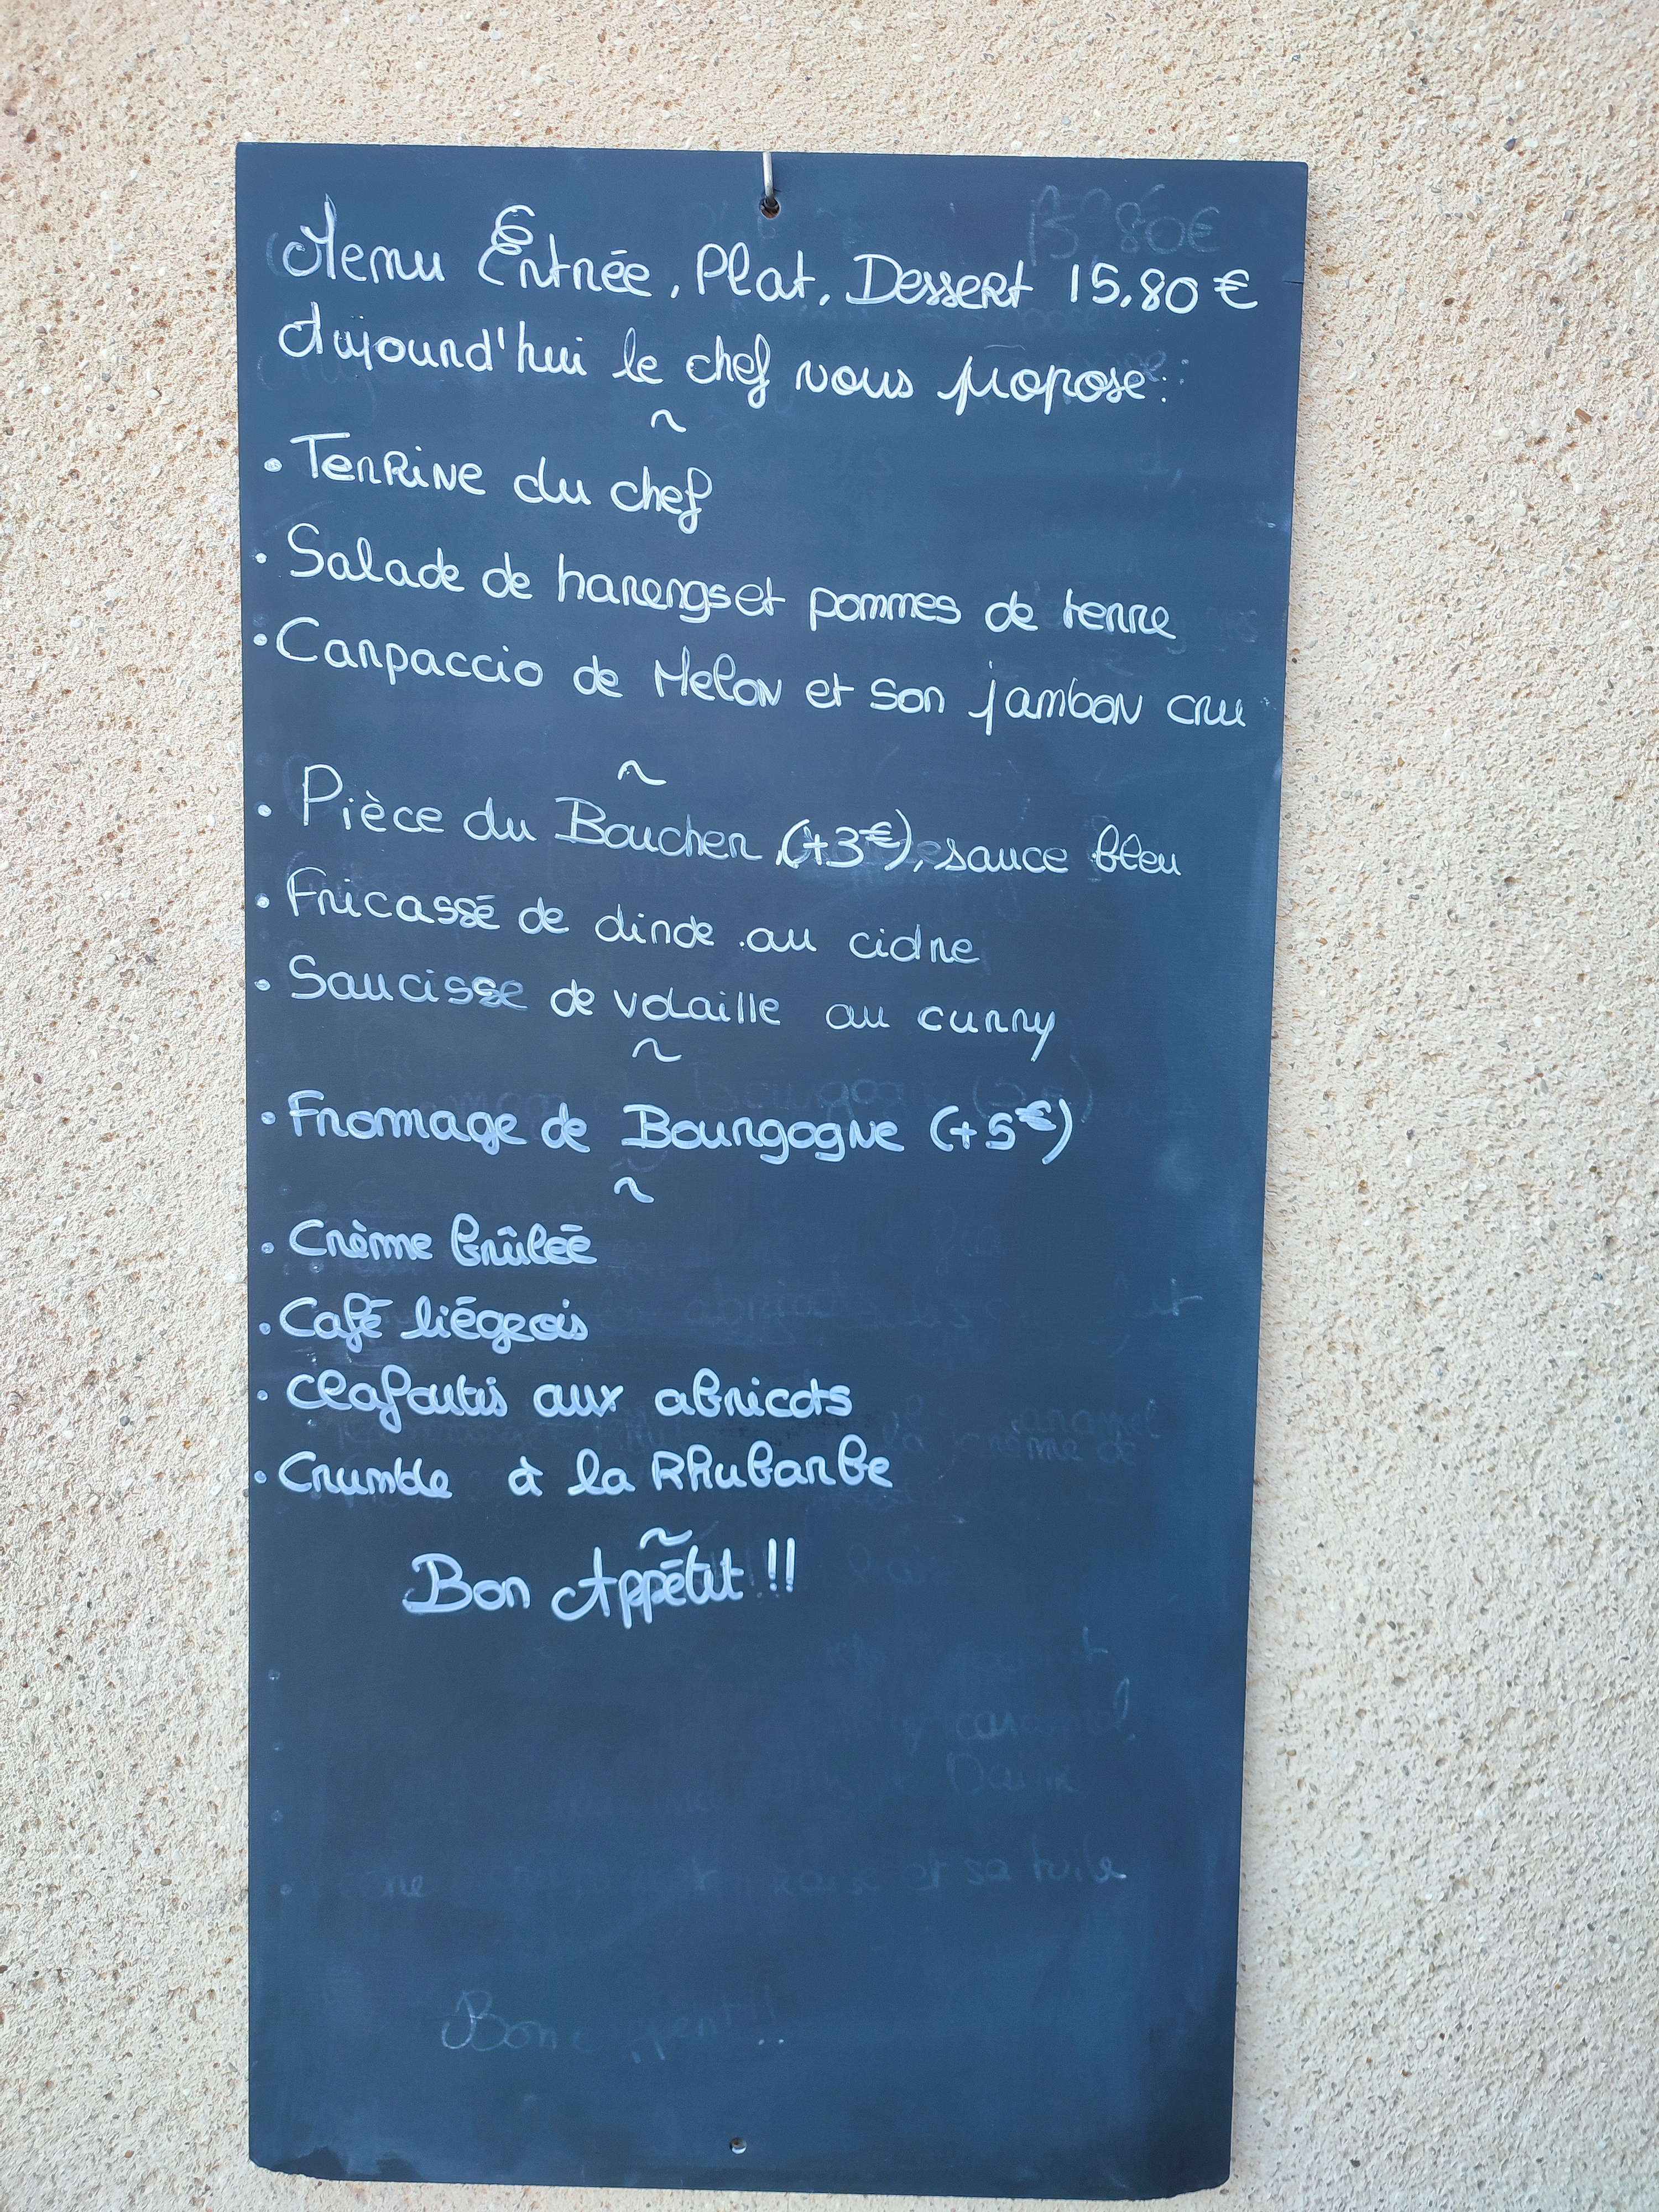 Menu Entrée, Plat, Dessert 15,80€
Aujourd'hui le chef vous propose:
~
• Terrine du chef
• Salade de harengs et pommes de terre
• Carpaccio de Melon et son jambon cru
~
• Pièce du Boucher (+3€), sauce bleu
• Fricassé de dinde au cidre
• Saucisse de volaille au curry
~
• Fromage de Bourgogne (+5€)
~
• Crème brûlée
• Café liégeois
• Clafoutis aux abricots
• Crumble à la Rhubarbe
~
Bon Appétit!!